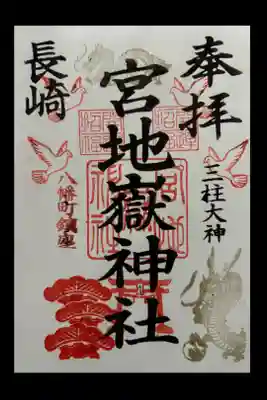 奉拝
三柱大神
宮地嶽神社
長崎
八幡町鎮座